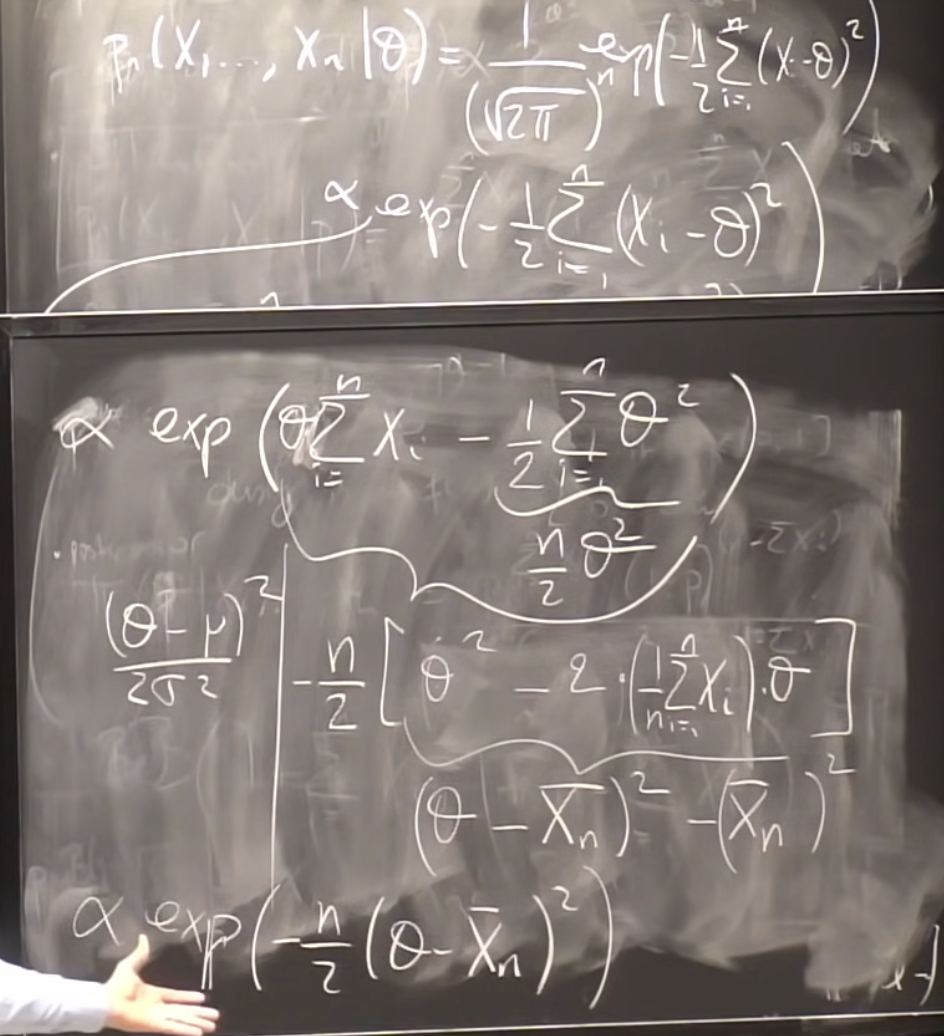 pₙ(X₁ ..., Xₙ|θ) = 1/(√2π)ⁿ exp(-1/2 Σᵢ₌₁ⁿ (Xᵢ-θ)²)
∝ exp(-1/2 Σᵢ₌₁ⁿ (Xᵢ - θ)²)
∝ exp(θ Σᵢ₌ⁿ Xᵢ - 1/2 Σᵢ₌₁ⁿ θ²)
n/2 θ²
(θ - μ)²/2σ²
-n/2 [θ² - 2 · (1/n Σᵢ₌₁ⁿ Xᵢ) · θ]
(θ - X̄ₙ)² - (X̄ₙ)²
∝ exp(-n/2 (θ - X̄ₙ)²)